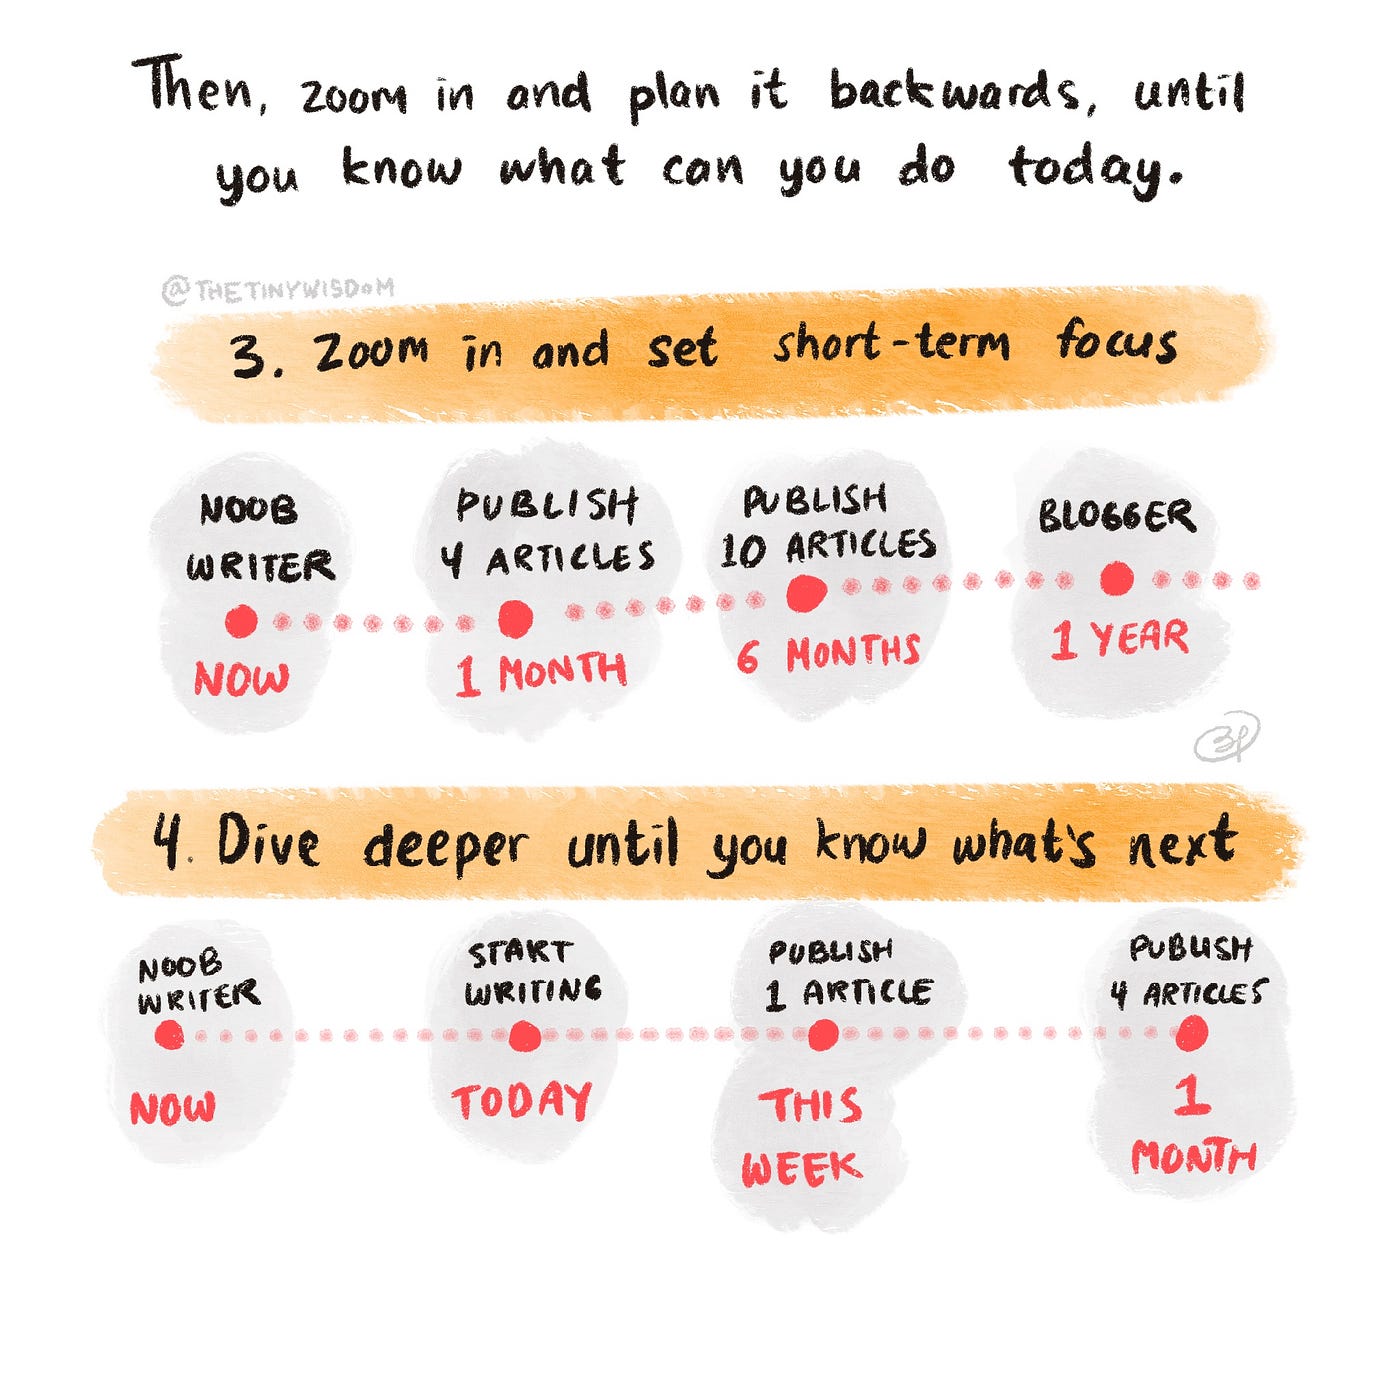 Then, zoom in and plan it backwards, until
you know what can you do today.
@THETINYWISDOM
3. Zoom in and set short-term focus
NOOB
WRITER
NOW
PUBLISH
4 ARTICLES
1 MONTH
PUBLISH
10 ARTICLES
6 MONTHS
BLOGGER
1 YEAR
4. Dive deeper until you know what's next
NOOB
WRITER
NOW
START
WRITING
TODAY
PUBLISH
1 ARTICLE
THIS
WEEK
PUBLISH
4 ARTICLES
1
MONTH